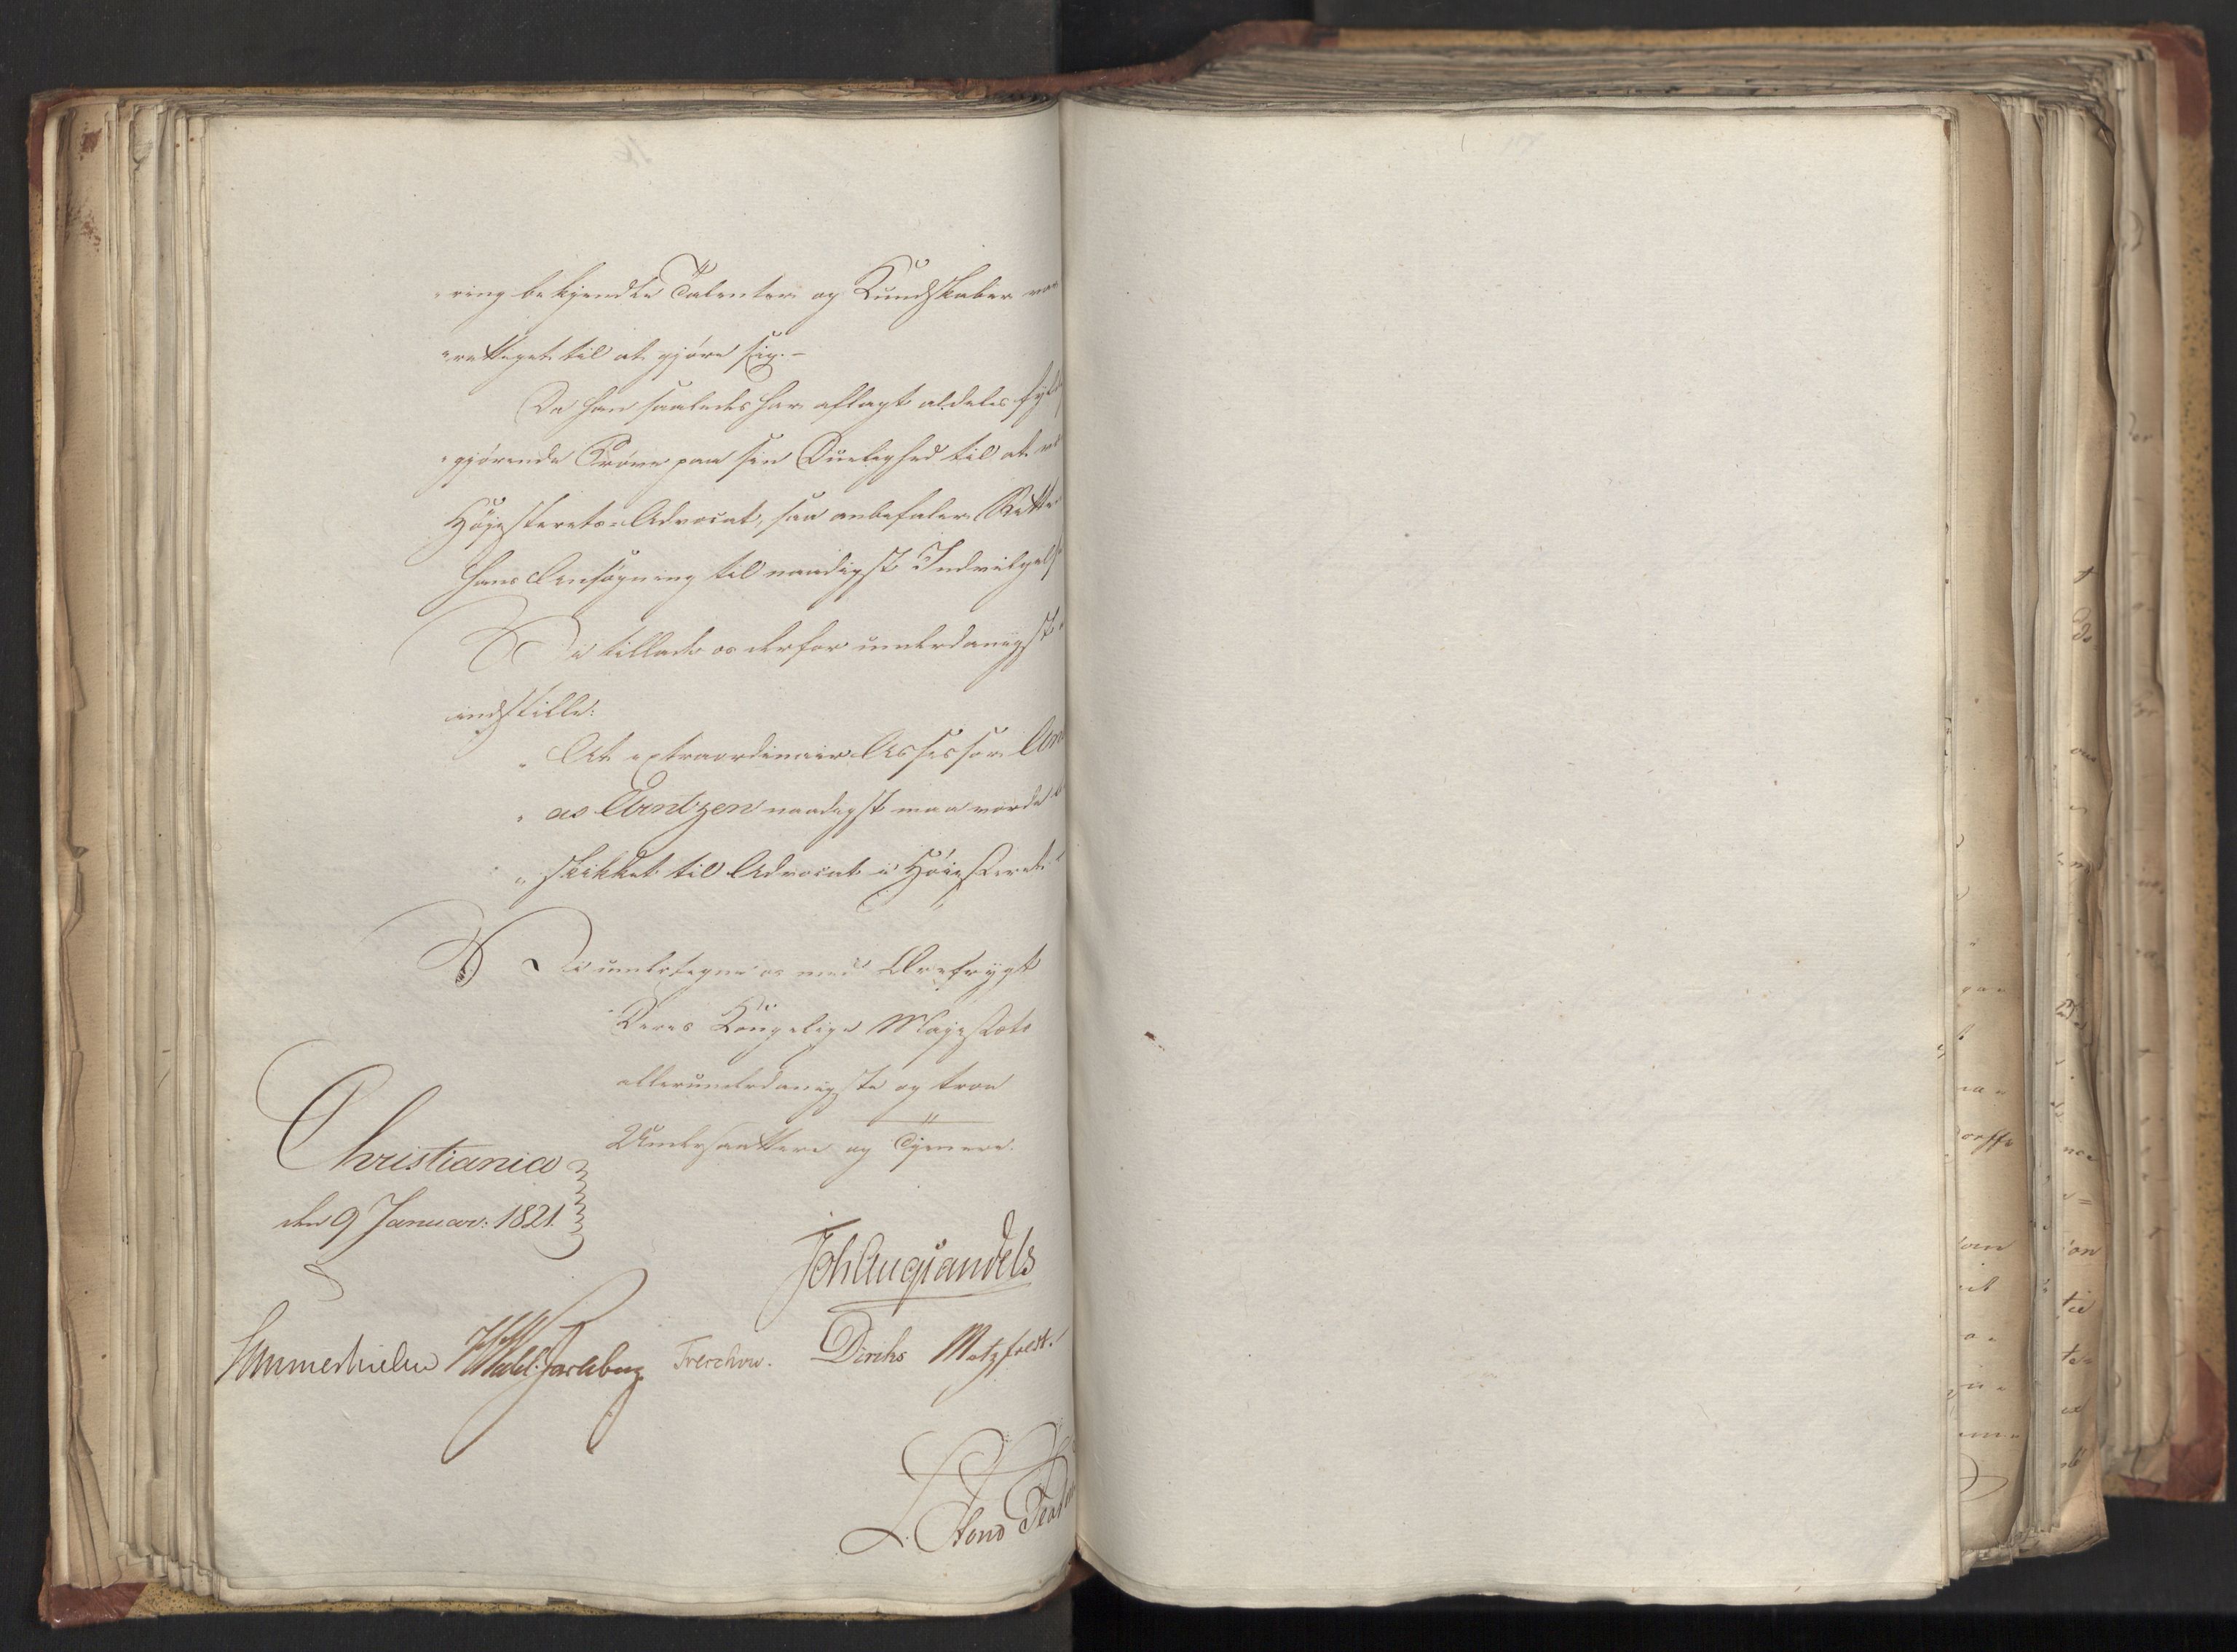 "ring bekjendte Talenter og Kundskaber var
"rettiget til at gjøre sig.-
Da han saaledes har aflagt aldeles fyld
"gjørende Prøve paa sin Duelighed til at være
Høiesterets-Advocat, saa anbefaler Retten
hans Ansøgning til naadigst Indvilgelse
Vi tillade os derfor underdanigst
indstille:
"At extraordinair Assessor An
"as Arntzen naadigst maa vorde be
"skikket til Advocat i Høiesteret."
Vi undertegne os med Ærefrygt
Deres Kongelige Majestæts
allerunderdanigste og troe
Undersaattere og Tjenere.
Christiania
den 9 Januar: 1821.
Joh Aug Sandels
Sommerhielm Wedel Jarlsberg Treschow. Diriks Motzfeldt.
L.